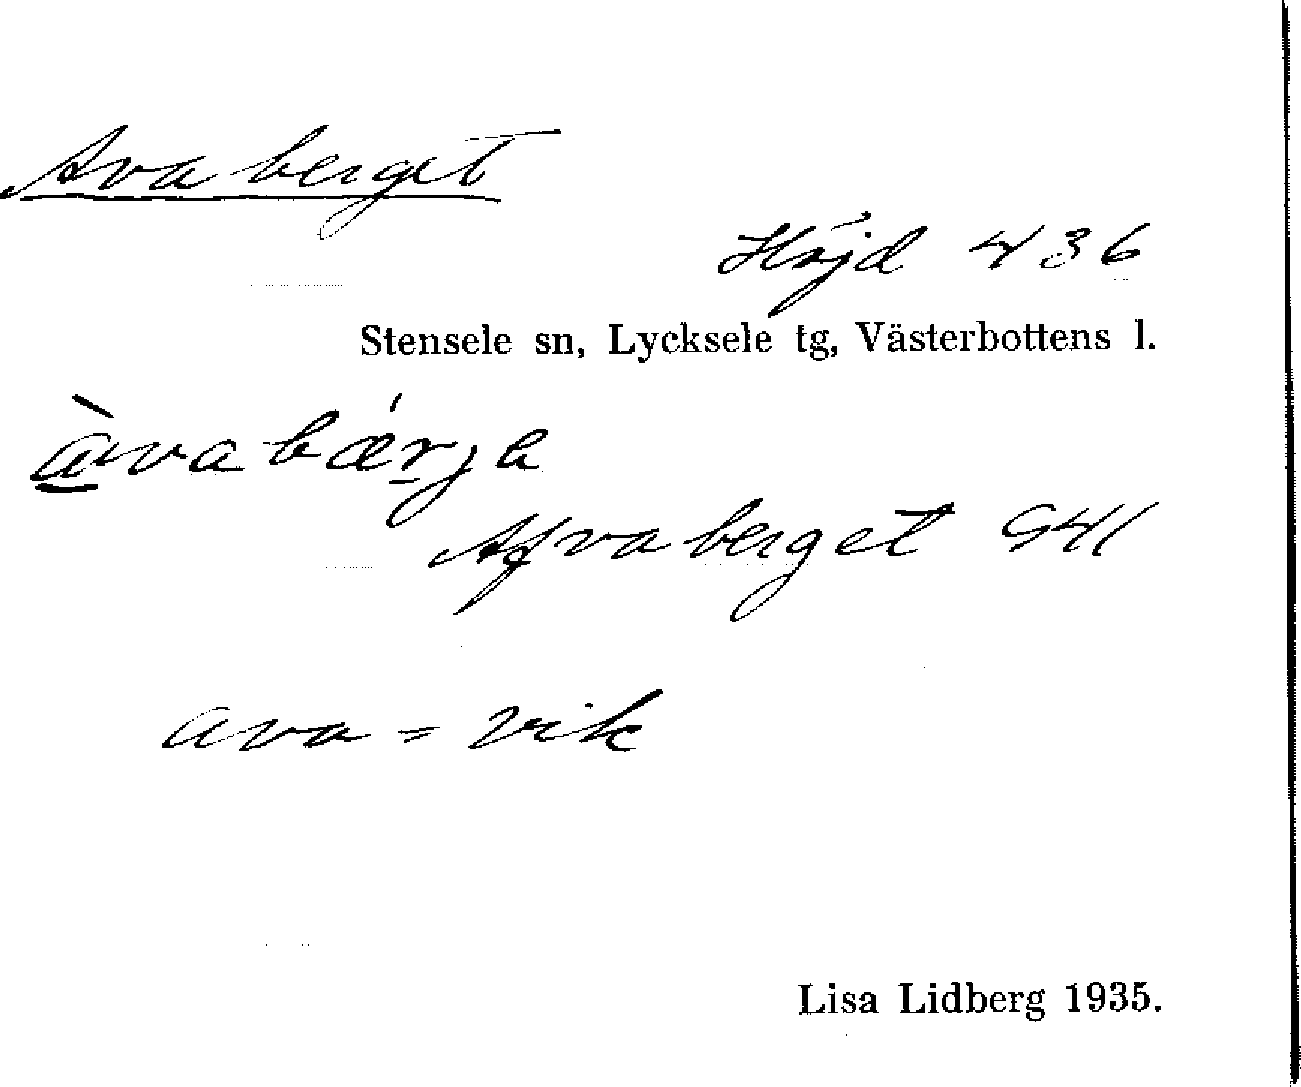 Avaberget
Höjd 436
Stensele sn, Lycksele tg, Västerbottens l.
àvabǽrja
Afvaberget G41
ava = vik
Lisa Lidberg 1935.